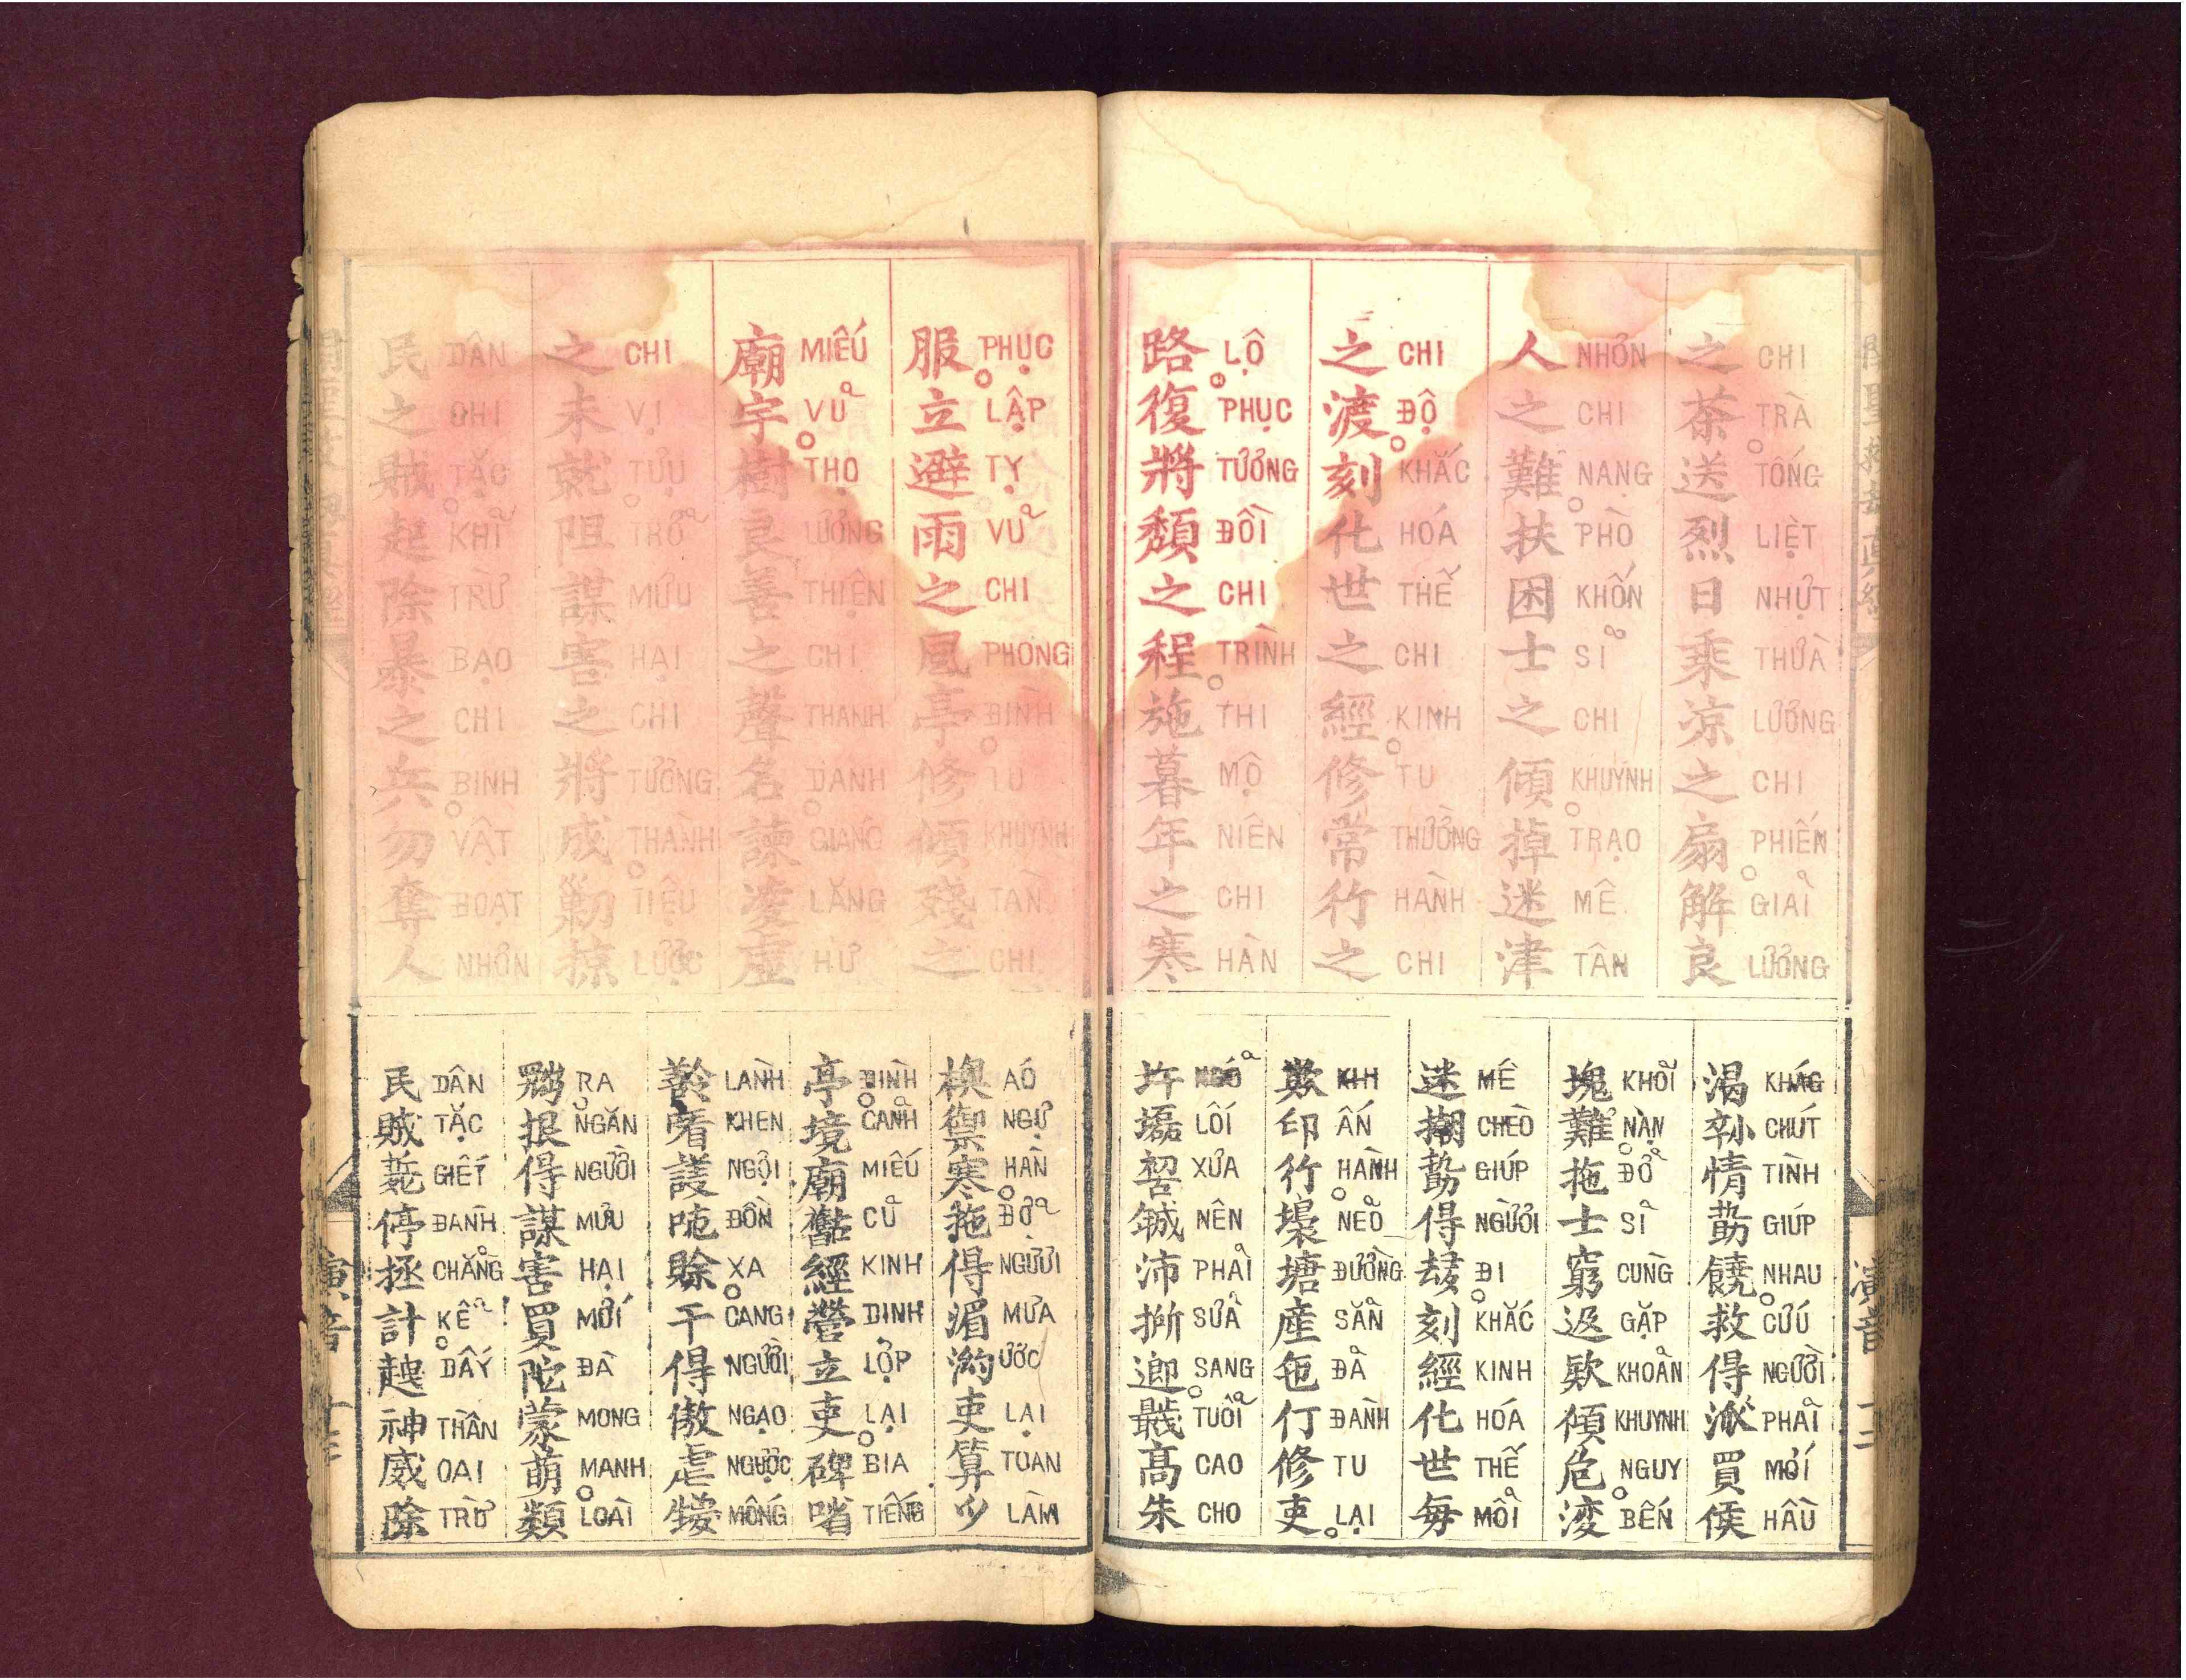 之茶送烈日乘涼之扇解良
CHI TRÀ TỐNG LIỆT NHỰT THỪA LƯƠNG CHI PHIẾN GIẢI LƯƠNG
人之難扶困士之傾掉迷津
NHƠN CHI NẠNG PHÒ KHỐN SĨ CHI KHUYNH TRẠO MÊ TÂN
之渡刻化世之經修常行之
CHI ĐỘ KHẮC HÓA THẾ CHI KINH TU THƯỜNG HÀNH CHI
路復將頹之程施暮年之寒
LỘ PHỤC TƯƠNG ĐỒI CHI TRÌNH THI MỘ NIÊN CHI HÀN
渴𡭧情𠢞饒救得派買侯
KHÁC CHÚT TÌNH GIÚP NHAU CỨU NGƯỜI PHẢI MỚI HẦU
塊難拖士窮𨒺欵傾危𣷷
KHỎI NẠN ĐỞ SĨ CÙNG GẶP KHOẢN KHUYNH NGUY BẾN
迷𢵧𠢞得𠫾刻經化世每
MÊ CHÈO GIÚP NGƯỜI ĐI KHẮC KINH HÓA THẾ MỖI
欺印行塘產㐌行修吏
KHI ẤN HÀNH NẺO ĐƯỜNG SẴN ĐÀ ĐÀNH TU LẠI
磊𠸗𢧚沛𢯢𨖅𢆫高朱
NGÕ LỐI XƯA NÊN PHẢI SỬA SANG TUỔI CAO CHO
服立避雨之風亭修傾殘之
PHỤC LẬP TỴ VŨ CHI PHONG ĐÌNH TU KHUYNH TÀN CHI
廟宇樹良善之聲名諫凌虛
MIẾU VŨ THỌ LƯƠNG THIỆN CHI THANH DANH GIÁNG LĂNG HƯ
之未就阻謀害之將成勦掠
CHI VỊ TỰU TRỞ MƯU HẠI CHI TƯƠNG THÀNH TIỆU LƯỢC
民之賊起除暴之兵勿奪人
DÂN CHI TẶC KHỈ TRỪ BẠO CHI BINH VẬT ĐOẠT NHƠN
襖禦寒拖得湄渃吏算𫜵
ÁO NGỰ HÀN ĐỞ NGƯỜI MƯA ƯỚC LẠI TOAN LÀM
亭境廟𡳵經營立吏碑㗂
ĐÌNH CẢNH MIẾU CŨ KINH DINH LỢP LẠI BIA TIẾNG
𠸦護吨賒干得傲虐
LÀNH KHEN NGỘI ĐỒN XA CANG NGƯỜI NGẠO NGƯỢC MỐNG
𦋦拫得謀害買陀蒙萌類
RA NGĂN NGƯỜI MƯU HẠI MỚI ĐÀ MONG MANH LOÀI
民賊停拯計𧽈神威除
DÂN TẶC GIẾT ĐÀNH CHẲNG KỂ DẤY THẦN OAI TRỪ
演音